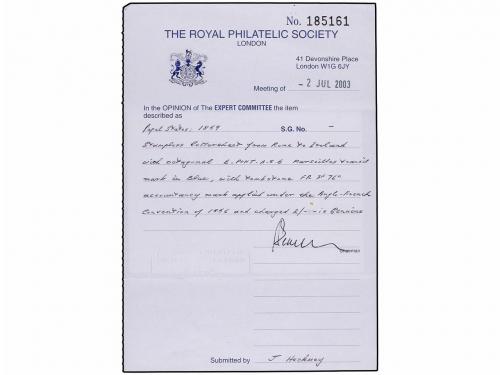 No. 185161
THE ROYAL PHILATELIC SOCIETY
LONDON
41 Devonshire Place
London W1G 6JY
Meeting of - 2 JUL 2003
In the OPINION of The EXPERT COMMITTEE the item
described as
Papal States: 1859 S.G. No. -
Stampless lettersheet from Rome to
with octagonal Marseilles transit
mark in Blue, with tombstone FR
accountancy mark applied under the Anglo-French
Convention of 1856 and charged is Genuine
Chairman
Submitted by J Hackney